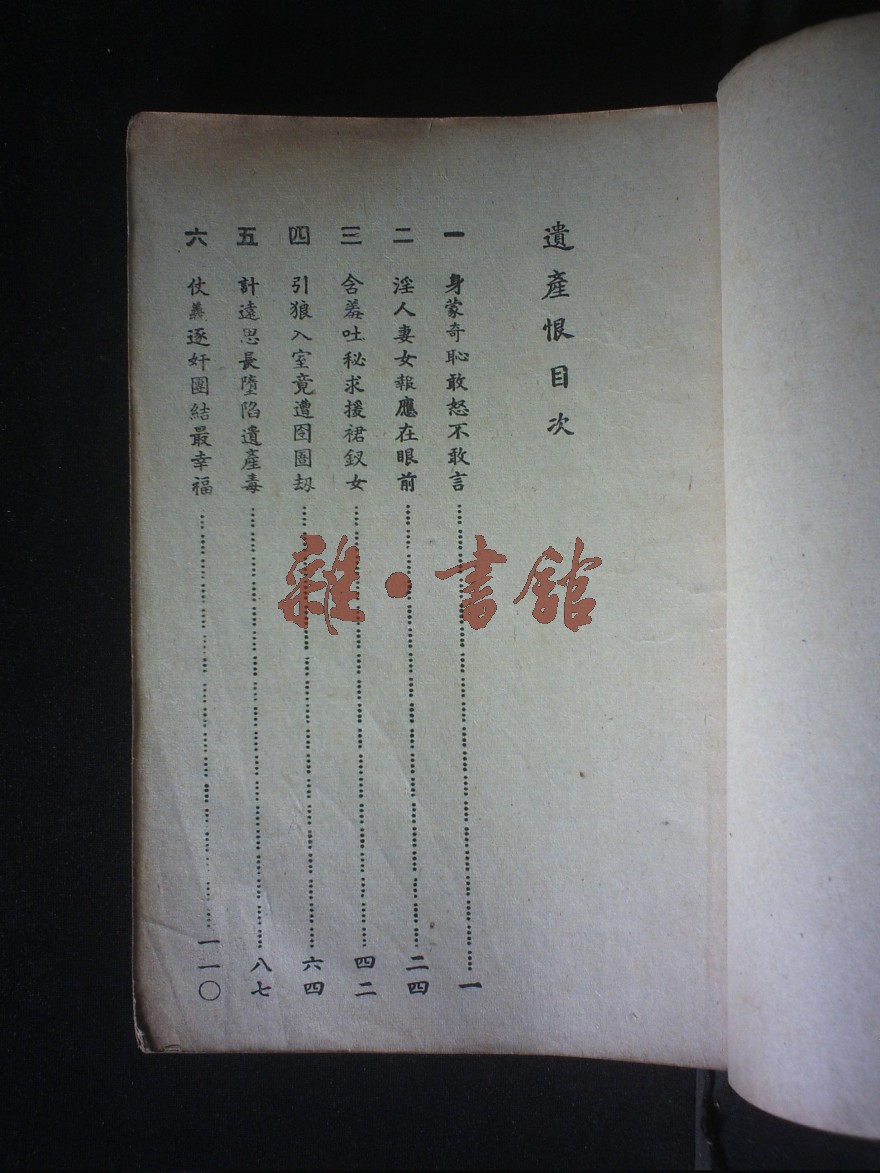 遺產恨目次
一 身蒙奇恥敢怒不敢言……一
二 淫人妻女報應在眼前……二四
三 含羞吐秘求援裙釵女……四二
四 引狼入室竟遭囹圄劫……六四
五 計遠思長墮陷遺產毒……八七
六 仗義逐奸團結最幸福……一一〇
雜·書館